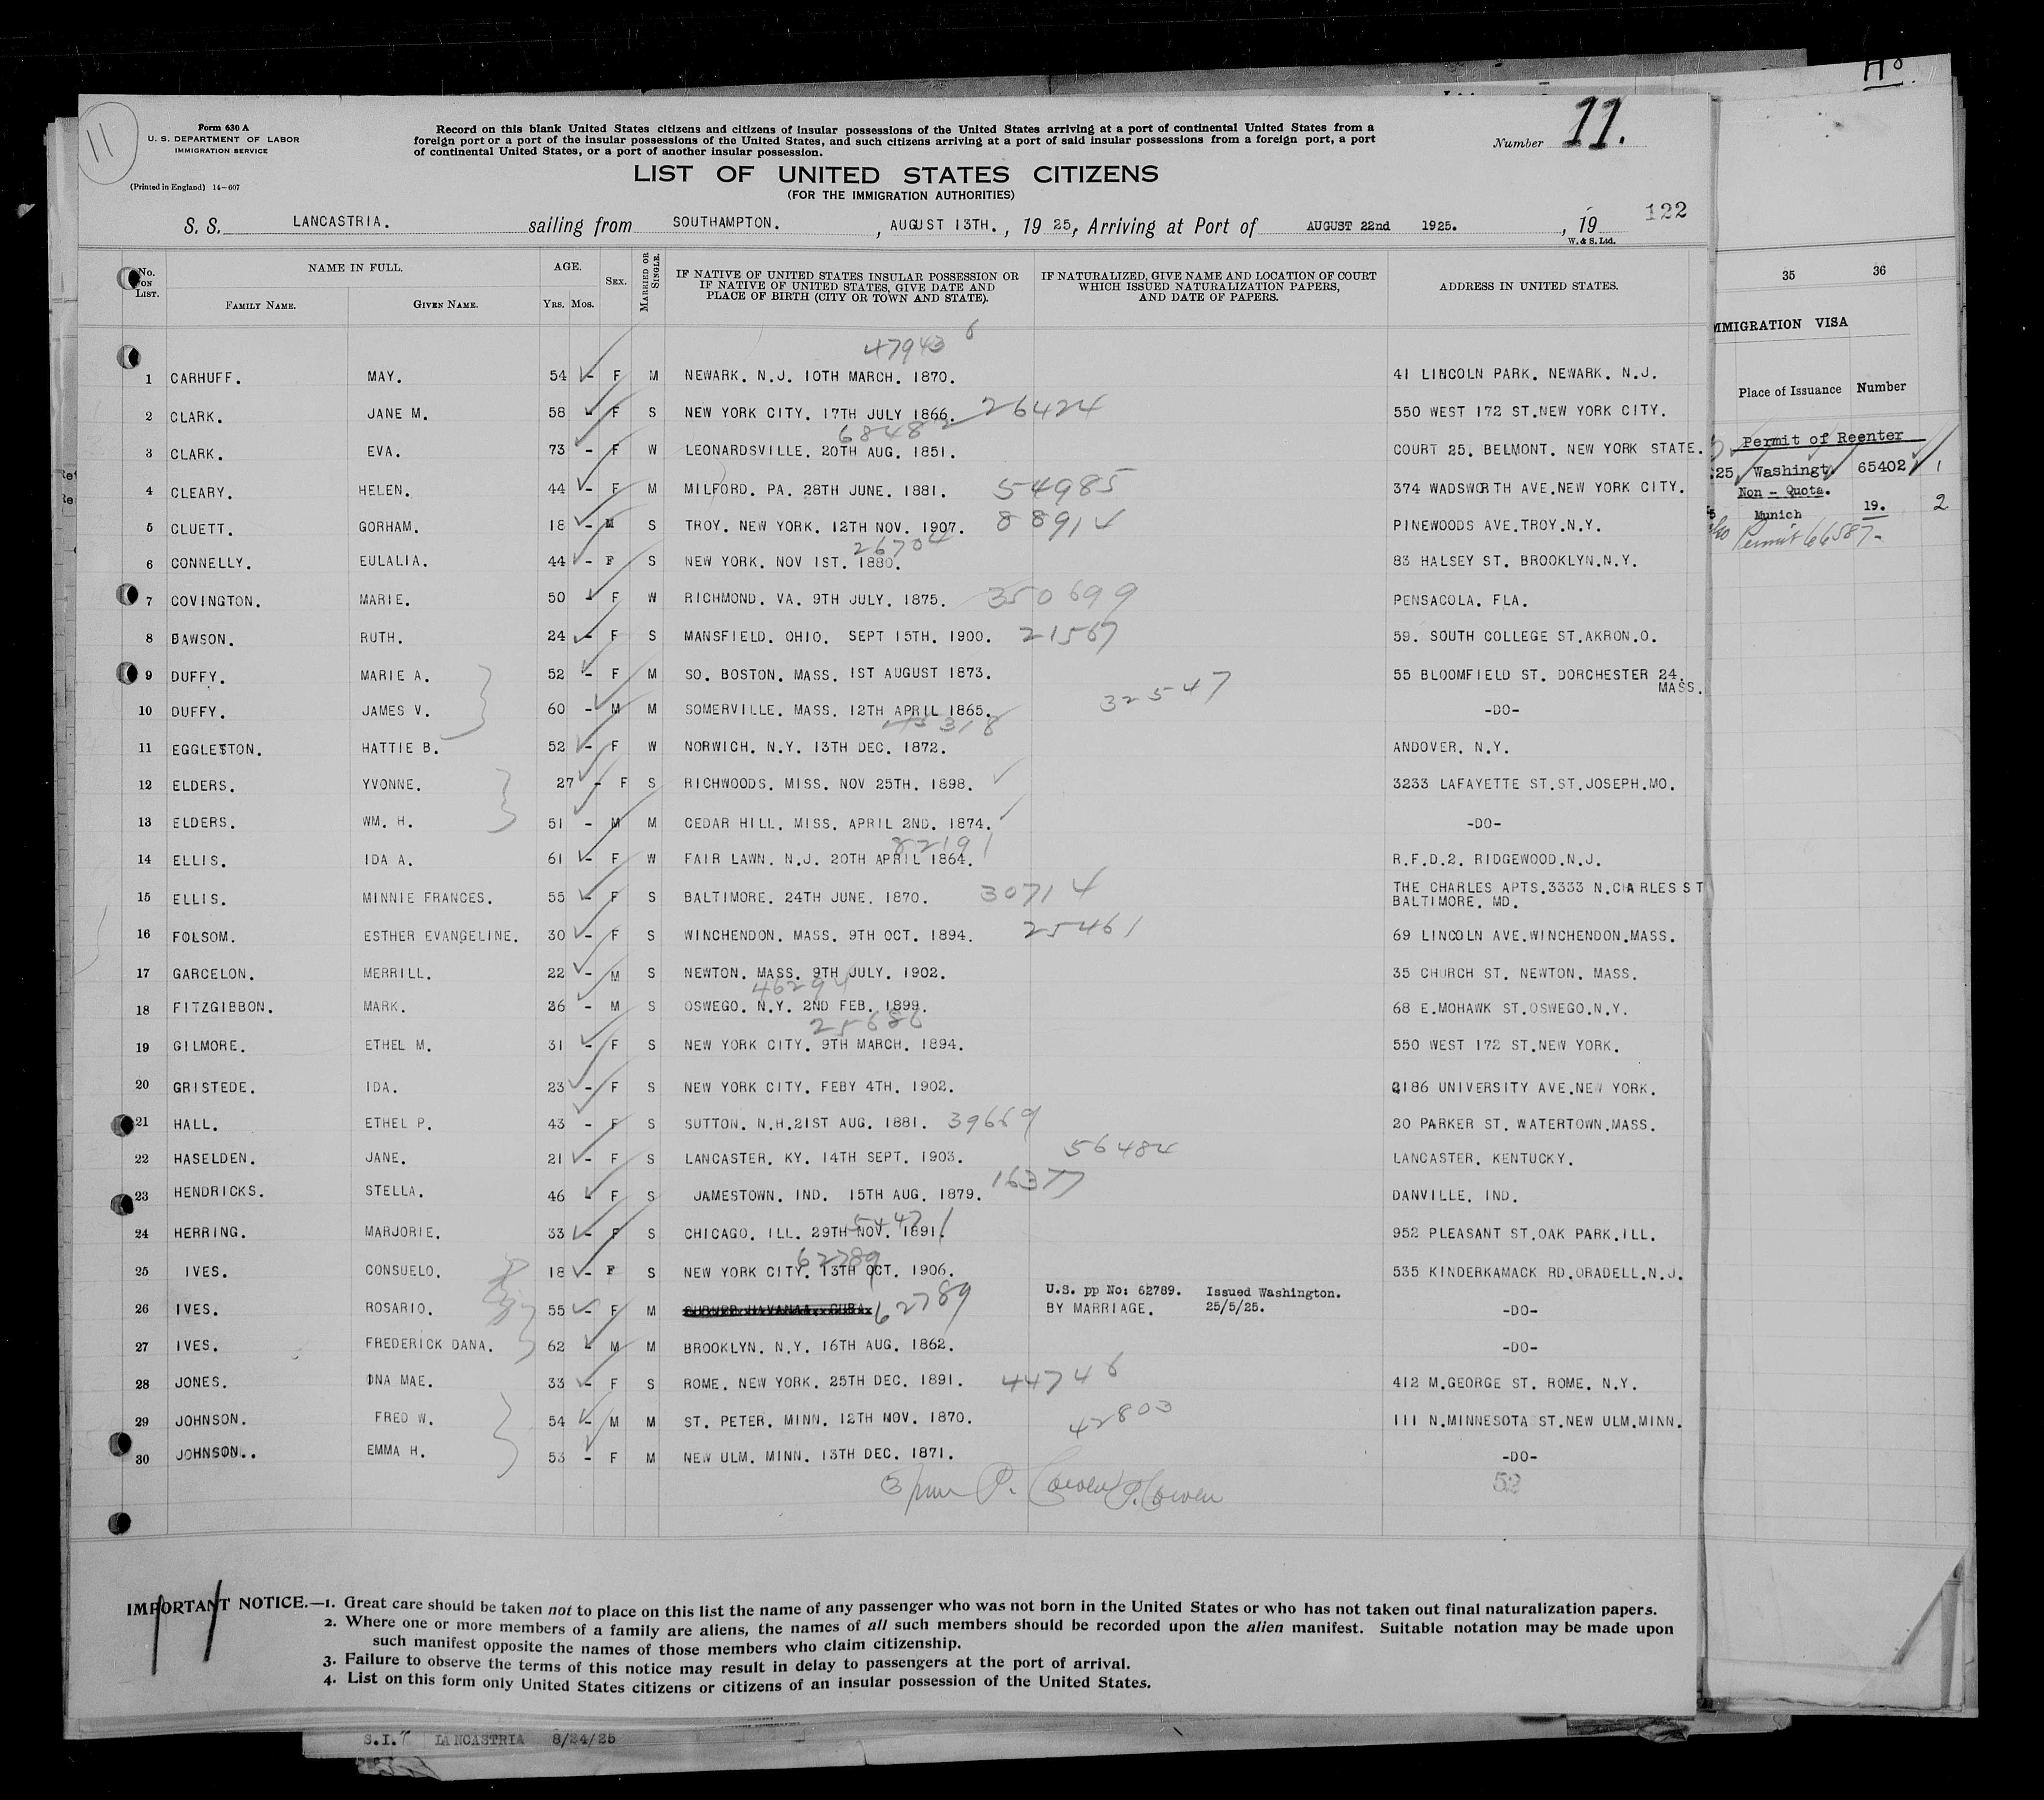 11
Form 630 A
U. S. DEPARTMENT OF LABOR
IMMIGRATION SERVICE
(Printed in England) 14-607
Record on this blank United States citizens and citizens of insular possessions of the United States arriving at a port of continental United States from a
foreign port or a port of the insular possessions of the United States, and such citizens arriving at a port of said insular possessions from a foreign port, a port
of continental United States, or a port of another insular possession.
Number 11.
LIST OF UNITED STATES CITIZENS
(FOR THE IMMIGRATION AUTHORITIES)
122
S. S. LANCASTRIA. sailing from SOUTHAMPTON. , AUGUST 13TH. , 19 25, Arriving at Port of AUGUST 22nd 1925. , 19
W. & S. Ltd.
No. ON LIST. NAME IN FULL. FAMILY NAME. GIVEN NAME. AGE. YRS. MOS. SEX. MARRIED OR SINGLE. IF NATIVE OF UNITED STATES INSULAR POSSESSION OR IF NATIVE OF UNITED STATES, GIVE DATE AND PLACE OF BIRTH (CITY OR TOWN AND STATE). IF NATURALIZED, GIVE NAME AND LOCATION OF COURT WHICH ISSUED NATURALIZATION PAPERS, AND DATE OF PAPERS. ADDRESS IN UNITED STATES.
47943 6
1 CARHUFF. MAY. 54 - F M NEWARK. N.J. 10TH MARCH. 1870. 41 LINCOLN PARK. NEWARK. N.J.
2 CLARK. JANE M. 58 - F S NEW YORK CITY. 17TH JULY 1866. 26424 550 WEST 172 ST.NEW YORK CITY.
68482
3 CLARK. EVA. 73 - F W LEONARDSVILLE. 20TH AUG. 1851. COURT 25. BELMONT. NEW YORK STATE.
4 CLEARY. HELEN. 44 - F M MILFORD. PA. 28TH JUNE. 1881. 54985 374 WADSWORTH AVE.NEW YORK CITY.
5 CLUETT. GORHAM. 18 - M S TROY. NEW YORK. 12TH NOV. 1907. 88914 PINEWOODS AVE.TROY.N.Y.
26704
6 CONNELLY. EULALIA. 44 - F S NEW YORK. NOV 1ST. 1880. 83 HALSEY ST. BROOKLYN.N.Y.
7 COVINGTON. MARIE. 50 - F W RICHMOND. VA. 9TH JULY. 1875. 350699 PENSACOLA. FLA.
8 BAWSON. RUTH. 24 - F S MANSFIELD. OHIO. SEPT 15TH. 1900. 21567 59. SOUTH COLLEGE ST.AKRON.O.
9 DUFFY. MARIE A. 52 - F M SO. BOSTON. MASS. 1ST AUGUST 1873. 55 BLOOMFIELD ST. DORCHESTER 24. MASS.
32547
10 DUFFY. JAMES V. 60 - M M SOMERVILLE. MASS. 12TH APRIL 1865. -DO-
45318
11 EGGLESTON. HATTIE B. 52 - F W NORWICH. N.Y. 13TH DEC. 1872. ANDOVER. N.Y.
12 ELDERS. YVONNE. 27 - F S RICHWOODS. MISS. NOV 25TH. 1898. 3233 LAFAYETTE ST.ST.JOSEPH.MO.
13 ELDERS. WM. H. 51 - M M CEDAR HILL. MISS. APRIL 2ND. 1874. -DO-
82191
14 ELLIS. IDA A. 61 - F W FAIR LAWN. N.J. 20TH APRIL 1864. R.F.D.2. RIDGEWOOD.N.J.
15 ELLIS. MINNIE FRANCES. 55 - F S BALTIMORE. 24TH JUNE. 1870. 30714 THE CHARLES APTS.3333 N.CHARLES ST BALTIMORE. MD.
16 FOLSOM. ESTHER EVANGELINE. 30 - F S WINCHENDON. MASS. 9TH OCT. 1894. 25461 69 LINCOLN AVE.WINCHENDON.MASS.
17 GARCELON. MERRILL. 22 - M S NEWTON. MASS. 9TH JULY. 1902. 35 CHURCH ST. NEWTON. MASS.
46294
18 FITZGIBBON. MARK. 36 - M S OSWEGO. N.Y. 2ND FEB. 1899. 68 E.MOHAWK ST.OSWEGO.N.Y.
25686
19 GILMORE. ETHEL M. 31 - F S NEW YORK CITY. 9TH MARCH. 1894. 550 WEST 172 ST.NEW YORK.
20 GRISTEDE. IDA. 23 - F S NEW YORK CITY. FEBY 4TH. 1902. 2186 UNIVERSITY AVE.NEW YORK.
21 HALL. ETHEL P. 43 - F S SUTTON. N.H.21ST AUG. 1881. 39669 20 PARKER ST. WATERTOWN.MASS.
22 HASELDEN. JANE. 21 - F S LANCASTER. KY. 14TH SEPT. 1903. 56484 LANCASTER. KENTUCKY.
23 HENDRICKS. STELLA. 46 - F S JAMESTOWN. IND. 15TH AUG. 1879. 16377 DANVILLE. IND.
5447
24 HERRING. MARJORIE. 33 - F S CHICAGO. ILL. 29TH NOV. 1891. 952 PLEASANT ST.OAK PARK.ILL.
62789
25 IVES. CONSUELO. 18 - F S NEW YORK CITY. 13TH OCT. 1906. 535 KINDERKAMACK RD.ORADELL.N.J.
26 IVES. ROSARIO. 55 - F M 62789 U.S. pp No: 62789. Issued Washington. BY MARRIAGE. 25/5/25. -DO-
27 IVES. FREDERICK DANA. 62 - M M BROOKLYN. N.Y. 16TH AUG. 1862. -DO-
28 JONES. INA MAE. 33 - F S ROME. NEW YORK. 25TH DEC. 1891. 44746 412 M.GEORGE ST. ROME. N.Y.
29 JOHNSON. FRED W. 54 - M M ST. PETER. MINN. 12TH NOV. 1870. 42803 111 N.MINNESOTA ST.NEW ULM.MINN.
30 JOHNSON.. EMMA H. 53 - F M NEW ULM. MINN. 13TH DEC. 1871. -DO-
52
IMPORTANT NOTICE.—1. Great care should be taken not to place on this list the name of any passenger who was not born in the United States or who has not taken out final naturalization papers.
2. Where one or more members of a family are aliens, the names of all such members should be recorded upon the alien manifest. Suitable notation may be made upon
such manifest opposite the names of those members who claim citizenship.
3. Failure to observe the terms of this notice may result in delay to passengers at the port of arrival.
4. List on this form only United States citizens or citizens of an insular possession of the United States.
S.I. LANCASTRIA 8/24/25
35 36
IMMIGRATION VISA
Place of Issuance Number
Permit of Reenter
25 Washingt. 65402 1
Non - Quota.
Munich 19. 2
Permit 66587.